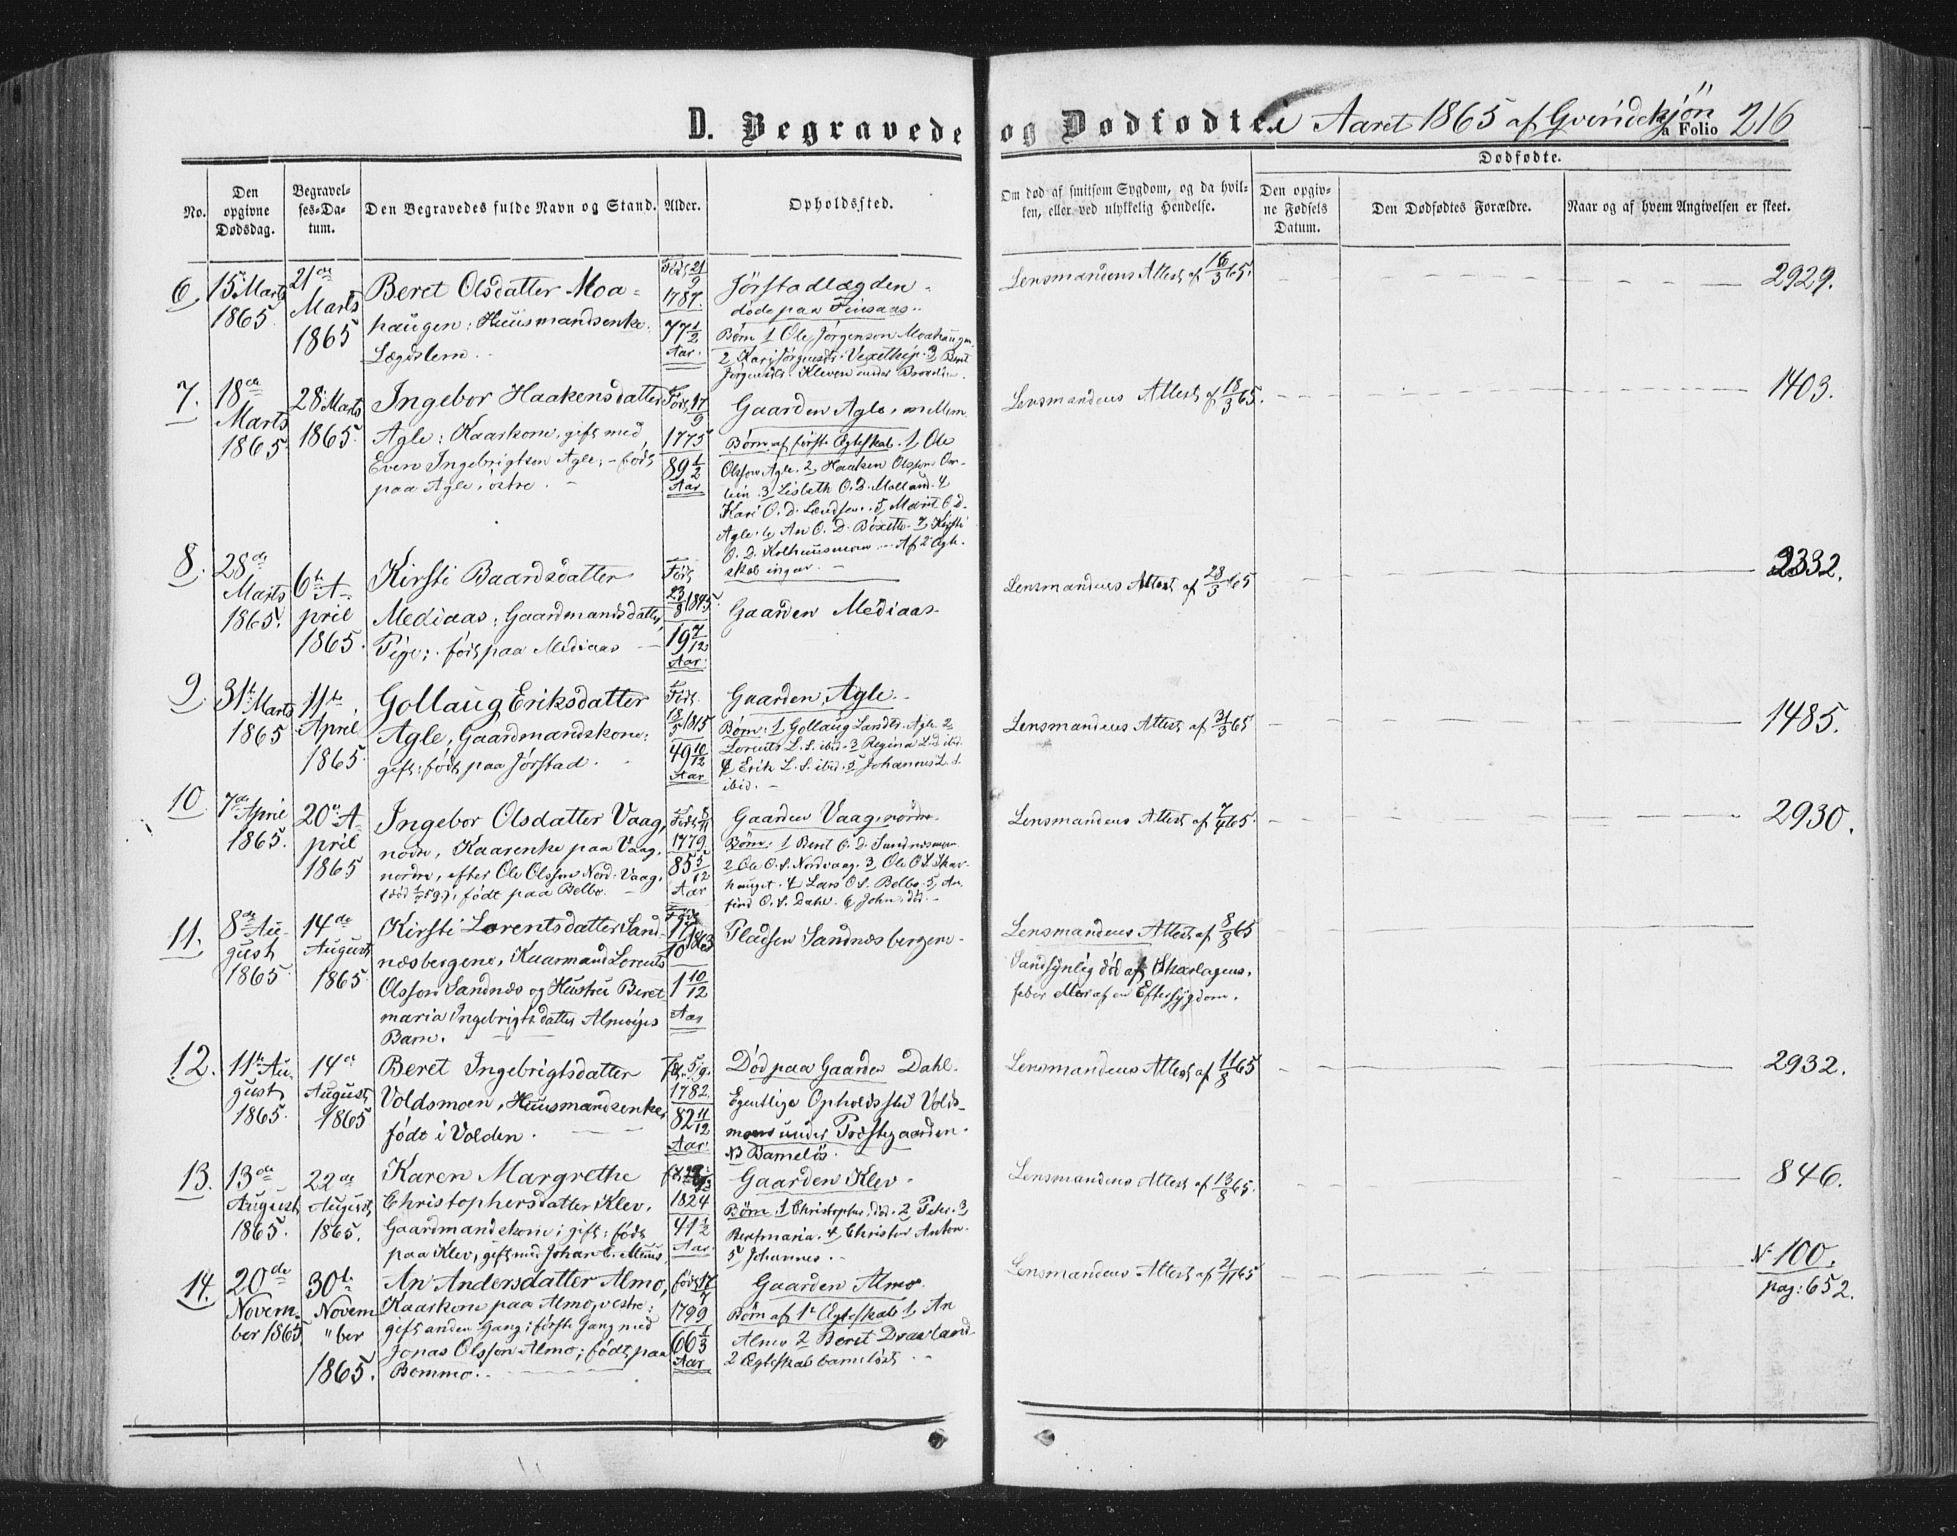 D. Begravede og Dødfødte i Aaret 1865 af Qvindekjøn a Folio 216
No.
Den opgivne Dødsdag.
Begravelses-Datum.
Den Begravedes fulde Navn og Stand.
Alder.
Opholdssted.
Om død af smitsom Sygdom, og da hvilken, eller ved ulykkelig Hendelse.
Dødfødte.
Den opgivne Fødsels Datum.
Den Dødfødtes Forældre.
Naar og af hvem Angivelsen er skeet.
6
15 Marts
1865
21de
Marts
1865
Beret Olsdatter Moa-
haugen: Huusmandsenke.
Lægdslem.
Født 21/9
1787.
77 1/2
Aar.
Jørstadlægden
døde paa Finsaas.
Børn 1 Ole Jørgenson Moahaugen
2 Kari Jørgensdr 3 Beret
Jørgensdr Kleven under
Lensmandens Attest af 16/3 65.
2929.
7.
18de
Marts
1865
28 Marts
1865
Ingebor Haakensdatter
Agle: Kaarkone, gift med
Even Ingebrigtsen Agle; født
paa Agle, østre.
Født 17/9
1775
89 1/2
Aar
Gaarden Agle, mellem
Børn af første Ægteskab. 1, Ole
Olsson Agle. 2, Haaken Olsson
3 Lisbeth O.D. Molland. 4
Kari O. D. 5, Marit O.D.
Agle. 6 An O. D. 7, Kirsti
O. D. Af 2 Ægte-
skab ingen.
Lensmandens Attest af 18/3 65.
1403.
8.
28de
Marts
1865.
6te A-
pril
1865.
Kirsti Baardsdatter
Mediaas: Gaardmandsdatter,
Pige; født paa Mediaas
Født
23/8 1845.
19 7/12
Aar.
Gaarden Mediaas
Lensmandens Attest af 28/3 65
2332.
9.
31te Marts
1865
11te
April
1865.
Gollaug Eriksdatter
Agle, Gaardmandskone:
gift: født paa Jørstad.
Født
18/5 1815
49 10/12
Aar
Gaarden Agle.
Børn: 1 Gollaug Larsdtr Agle 2
Lorents L. S. ibid. 3 Regina L.d. ibid.
4 Erik L. S. ibid. 5 Johannes L. S.
ibid.
Lensmandens Attest af 31/3 65
1485.
10.
7de April
1865.
20de A-
pril
1865
Ingebor Olsdatter Vaag,
nordre, Kaarenke paa Vaag,
nordre, efter Ole Olsson Nord-Vaag,
født paa Belbo.
1779
85 5/12
Aar
Gaarden Vaag, nordre
Børn: 1 Berit O. D. Sandnesmoen
2 Ole O. S. Nordvaag. 3, Ole O.S. Skav-
hauget. 4 Lars O S. Belbo. 5, An-
find O. S. Dahl. 6 John, død.
Lensmandens Attest af 7/4 65.
2930.
11.
8de Au-
gust
1865.
14de
August
1865.
Kirsti Lorentsdatter Sand-
næsbergene, Kaarmand Lorents
Olsson Sandnæs og Hustru Beret-
maria Ingebrigtsdatter Almviges
Barn.
Født
17/10 1863
1 10/12
Aar
Pladsen Sandnæsbergene
Lensmandens Attest af 8/8 65
Sandsynlig død af Skarlagens-
feber eller af en Eftersygdom.
12.
11te Au-
gust
1865.
14de
August
1865
Beret Ingebrigtsdatter
Voldsmoen, Huusmandsenke,
født i Volden.
1782
82 11/12
Aar.
Død paa Gaarden Dahl.
Egentlige Opholdssted Volds-
moen under Præstegaarden.
NB Barnløs.
Lensmandens Attest af 11/8 65
2932.
13.
13de
August
1865.
22de
August
1865.
Karen Margrethe
Christophersdatter Klev,
Gaardmandskone; gift; født
paa Klev, gift med Johan C. Muus
1824
41 1/2
Aar
Gaarden Klev
Børn, 1 Christopher, død. 2, Peter. 3,
Beretmaria. 4, Christen Anton.
5 Johannes.
Lensmandens Attest af 13/8 65.
846.
14.
20de
Novem-
ber 1865
30te
Novem
"ber
1865.
An Andersdatter Almo,
Kaarkone paa Almo, vestre:
gift anden Gang; første Gang med
Jonas Olsson Almo; født paa
Bommo.
født 17/7
1799
66 1/3
Aar
Gaarden Almo.
Børn af 1t Ægteskab 1, An
Almo 2 Beret Dravland
2 Ægteskab barnløst.
Lensmandens Attest af 2/11 65
N. 100.
pag: 652.